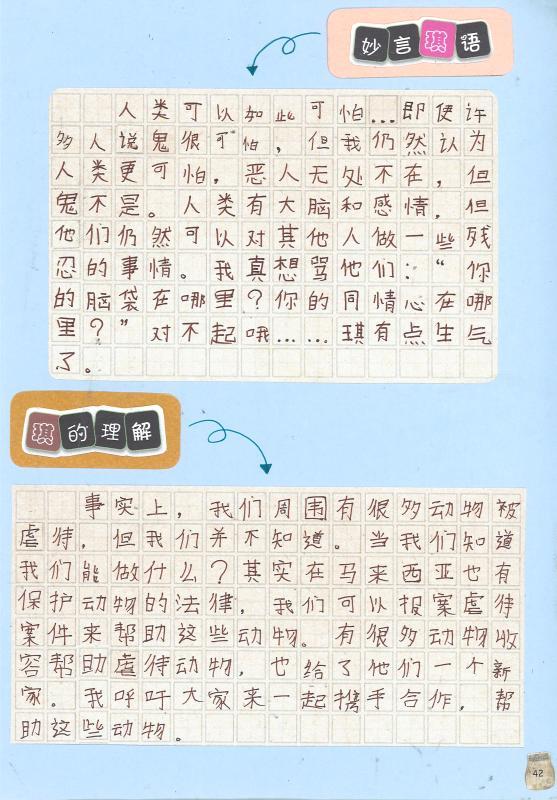 妙言琪语
人类可以如此可怕…即使许
多人说鬼很可怕，但我仍然认为
人类更可怕，恶人无处不在，但
鬼不是。人类有大脑和感情，但
他们仍然可以对其他人做一些残
忍的事情。我真想骂他们：“你
的脑袋在哪里？你的同情心在哪
里？”对不起哦……琪有点生气
了。
琪的理解
事实上，我们周围有很多动物被
虐待，但我们并不知道。当我们知道
我们能做什么？其实在马来西亚也有
保护动物的法律，我们可以报案虐待
案件来帮助这些动物。有很多动物收
容帮助虐待动物，也给了他们一个新
家。我呼吁大家来一起携手合作，帮
助这些动物。
42